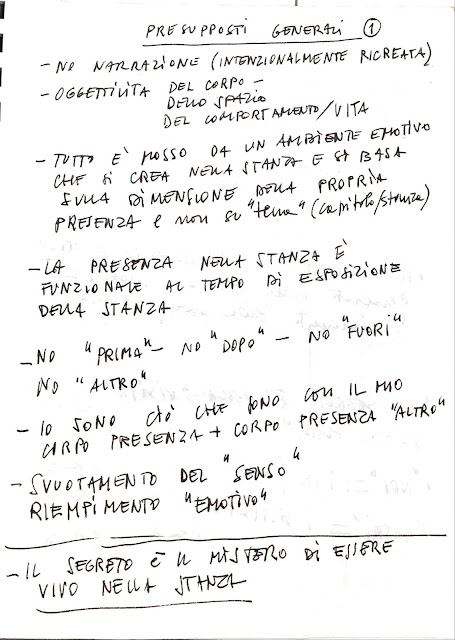 PRESUPPOSTI GENERALI 1
- NO NARRAZIONE (INTENZIONALMENTE RICREATA)
- OGGETTILITA DEL CORPO -
DELLO SPAZIO
DEL COMPORTAMENTO/VITA
- TUTTO E' MOSSO DA UN AMBIENTE EMOTIVO
CHE SI CREA NELLA STANZA E SI BASA
SULLA DIMENSIONE DELLA PROPRIA
PRESENZA e non su "tema" (capitolo/stanza)
- LA PRESENZA NELLA STANZA È
FUNZIONALE AL TEMPO DI ESPOSIZIONE
DELLA STANZA
- NO "PRIMA" - NO "DOPO" - NO "FUORI"
NO "ALTRO"
- IO SONO CIÒ CHE SONO CON IL MIO
CORPO PRESENZA + CORPO PRESENZA "ALTRO"
- SVUOTAMENTO DEL "SENSO"
RIEMPIMENTO "EMOTIVO"
- IL SEGRETO È IL MISTERO DI ESSERE
VIVO NELLA STANZA